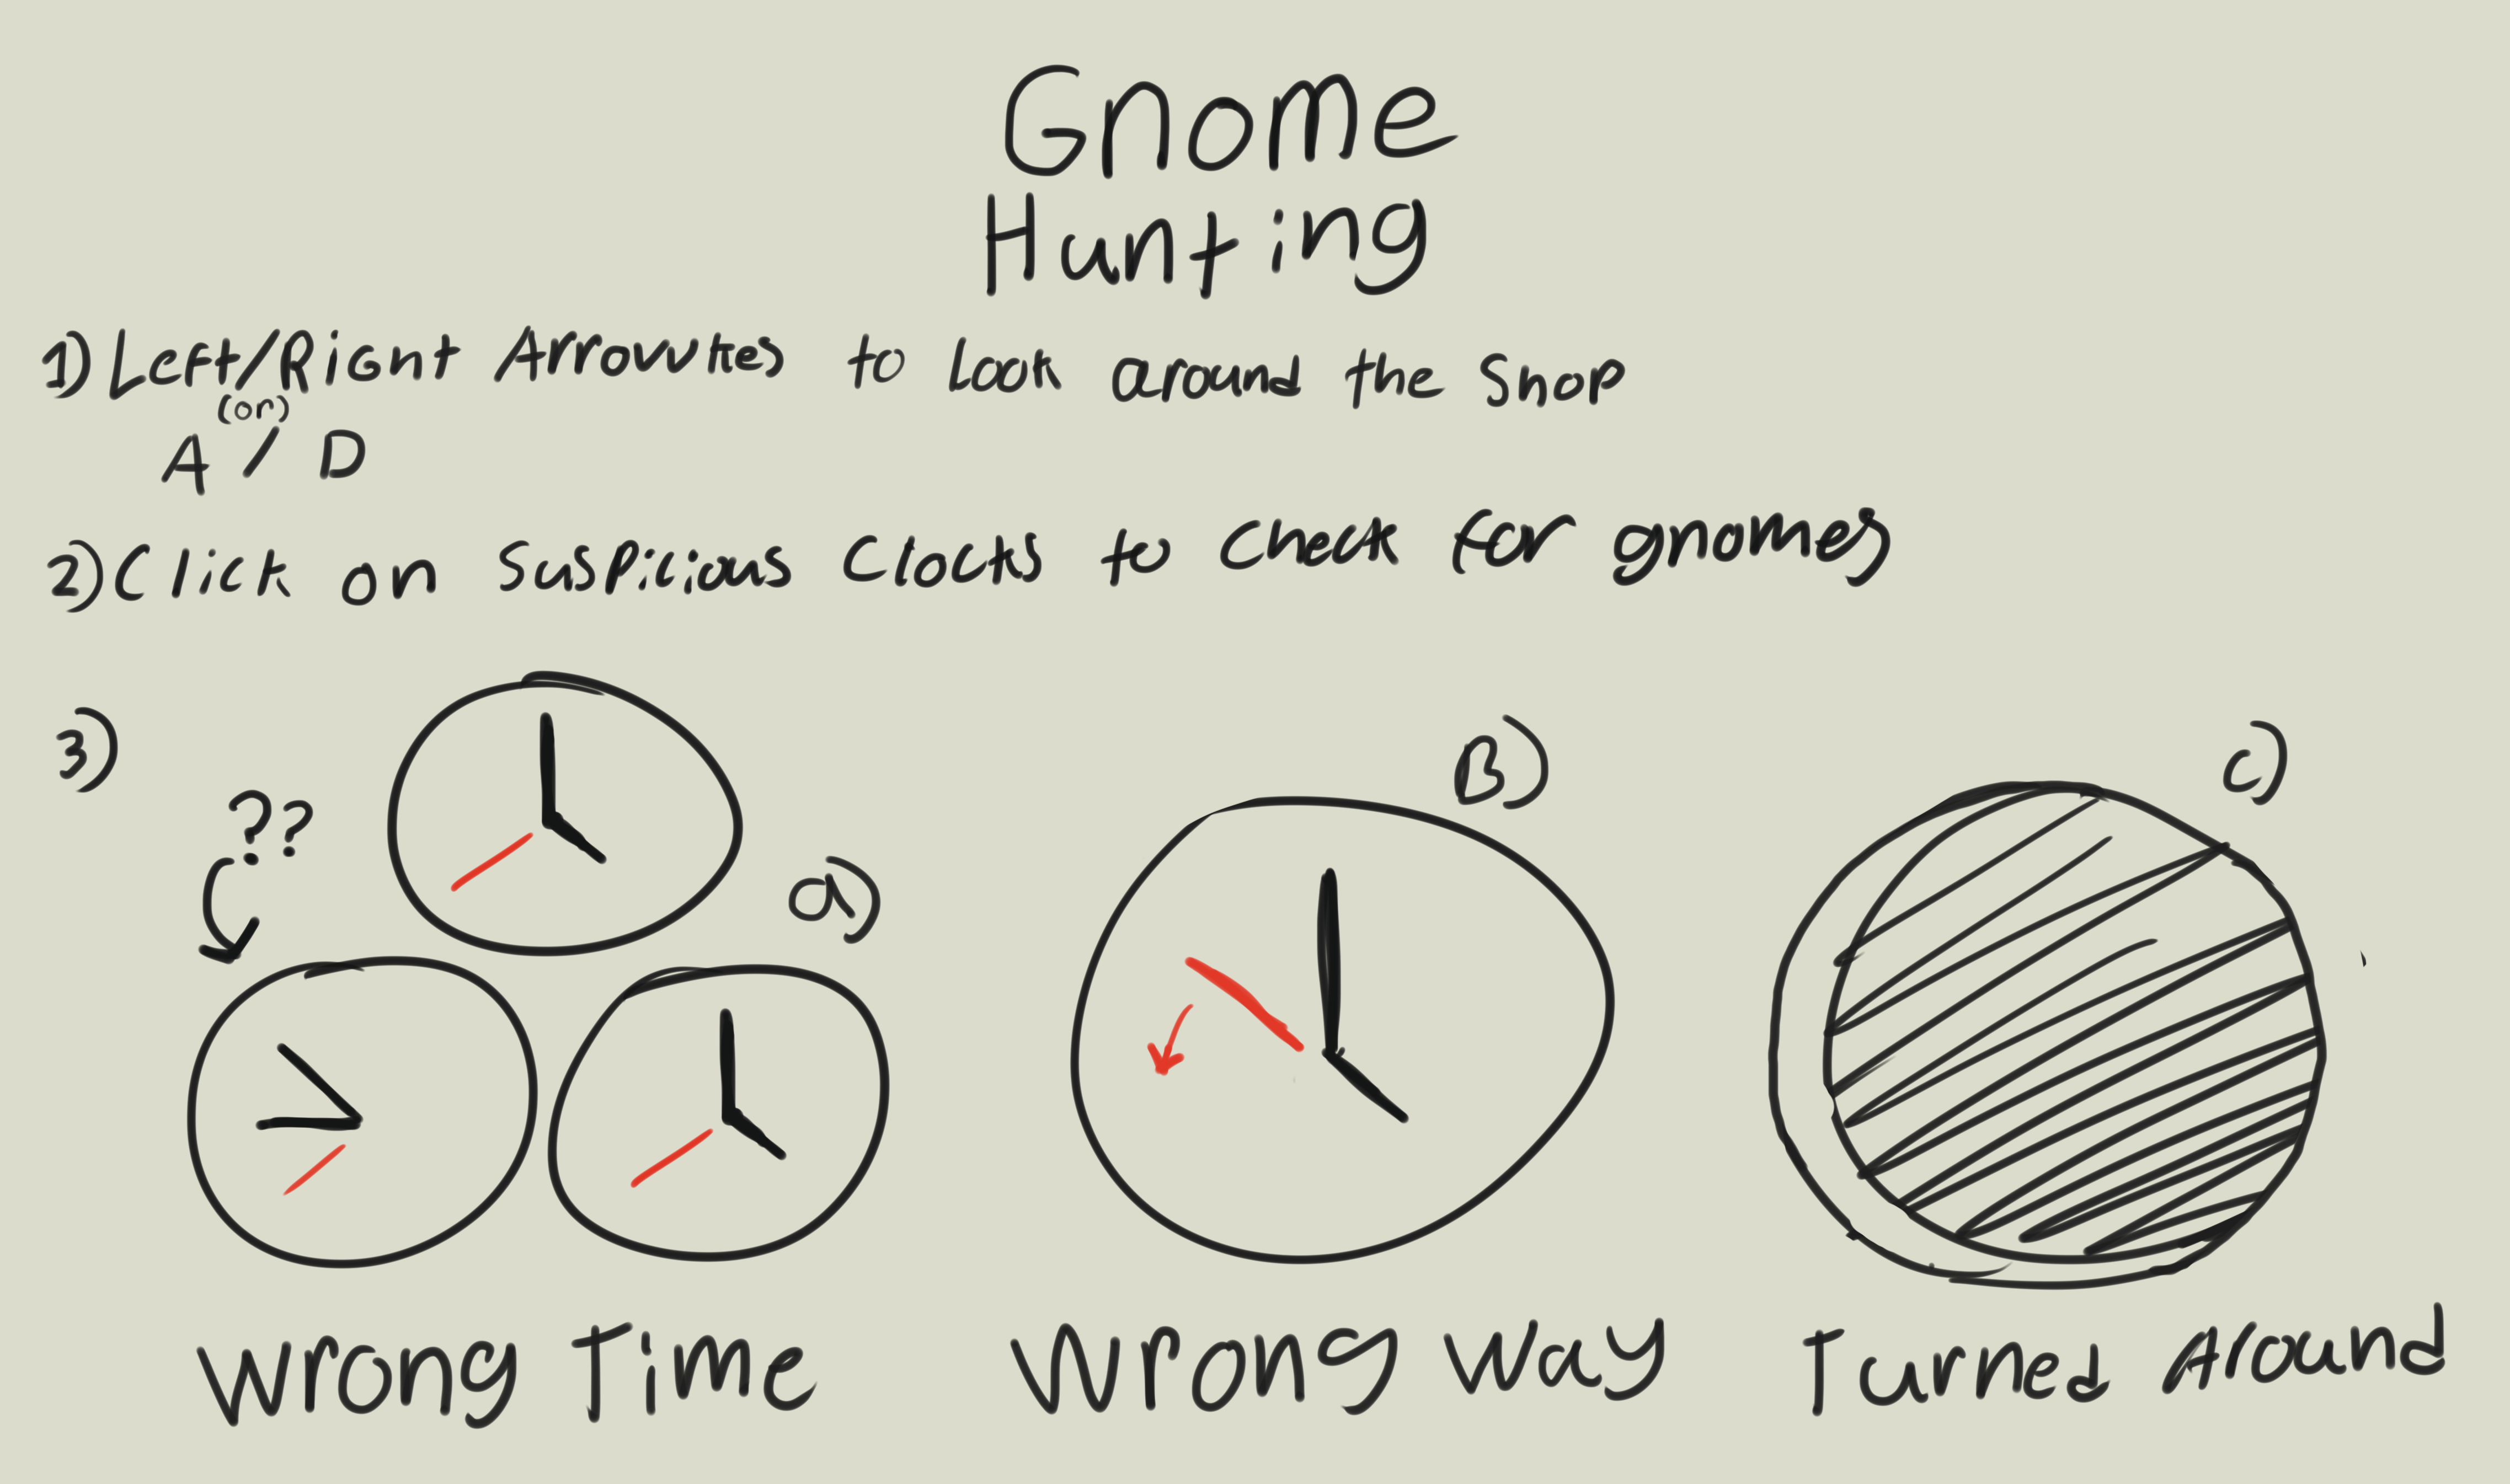 Gnome
Hunting
1) Left/Right Arrowkes to Look around the Shop
(or)
A / D
2) Click on Suspicious Clocks to Check for gnomes
3)
??
a)
B)
c)
Wrong Time
Wrong Way
Turned Around